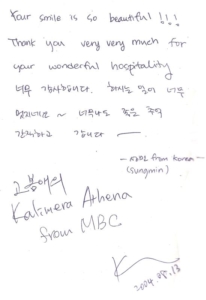 Your smile is so beautiful !!!
Thank you very very much for
your wonderful hospitality
너무 감사합니다. 하시는 일이 너무
멋지네요 ~ 너무나도 좋은 추억
간직하고 갑니다
from Korea -
(Sungmin)
고봉애의
Kalimera Athena
from MBC
2004.08.13